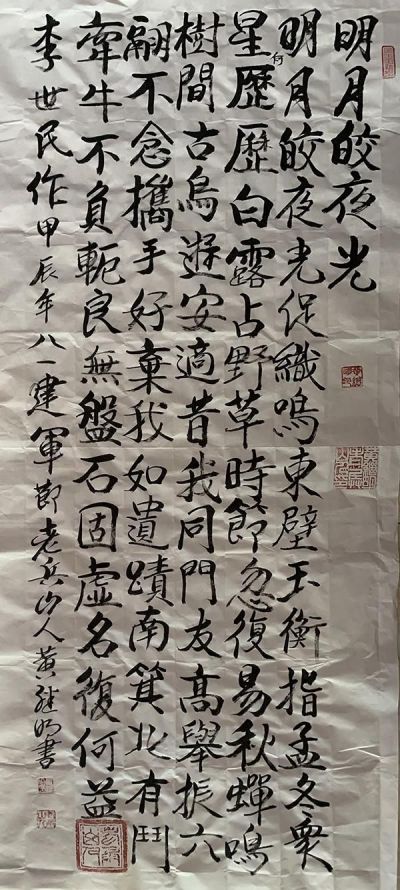 明月皎夜光
明月皎夜光促織鳴東壁玉衡指孟冬眾
星何歷歷白露占野草時節忽復易秋蟬鳴
樹間古鳥遊安適昔我同門友高舉振六
翮不念攜手好棄我如遺蹟南箕北有鬥
牽牛不負軛良無盤石固虛名復何益
李世民作甲辰年八一建軍節老兵山人黃書